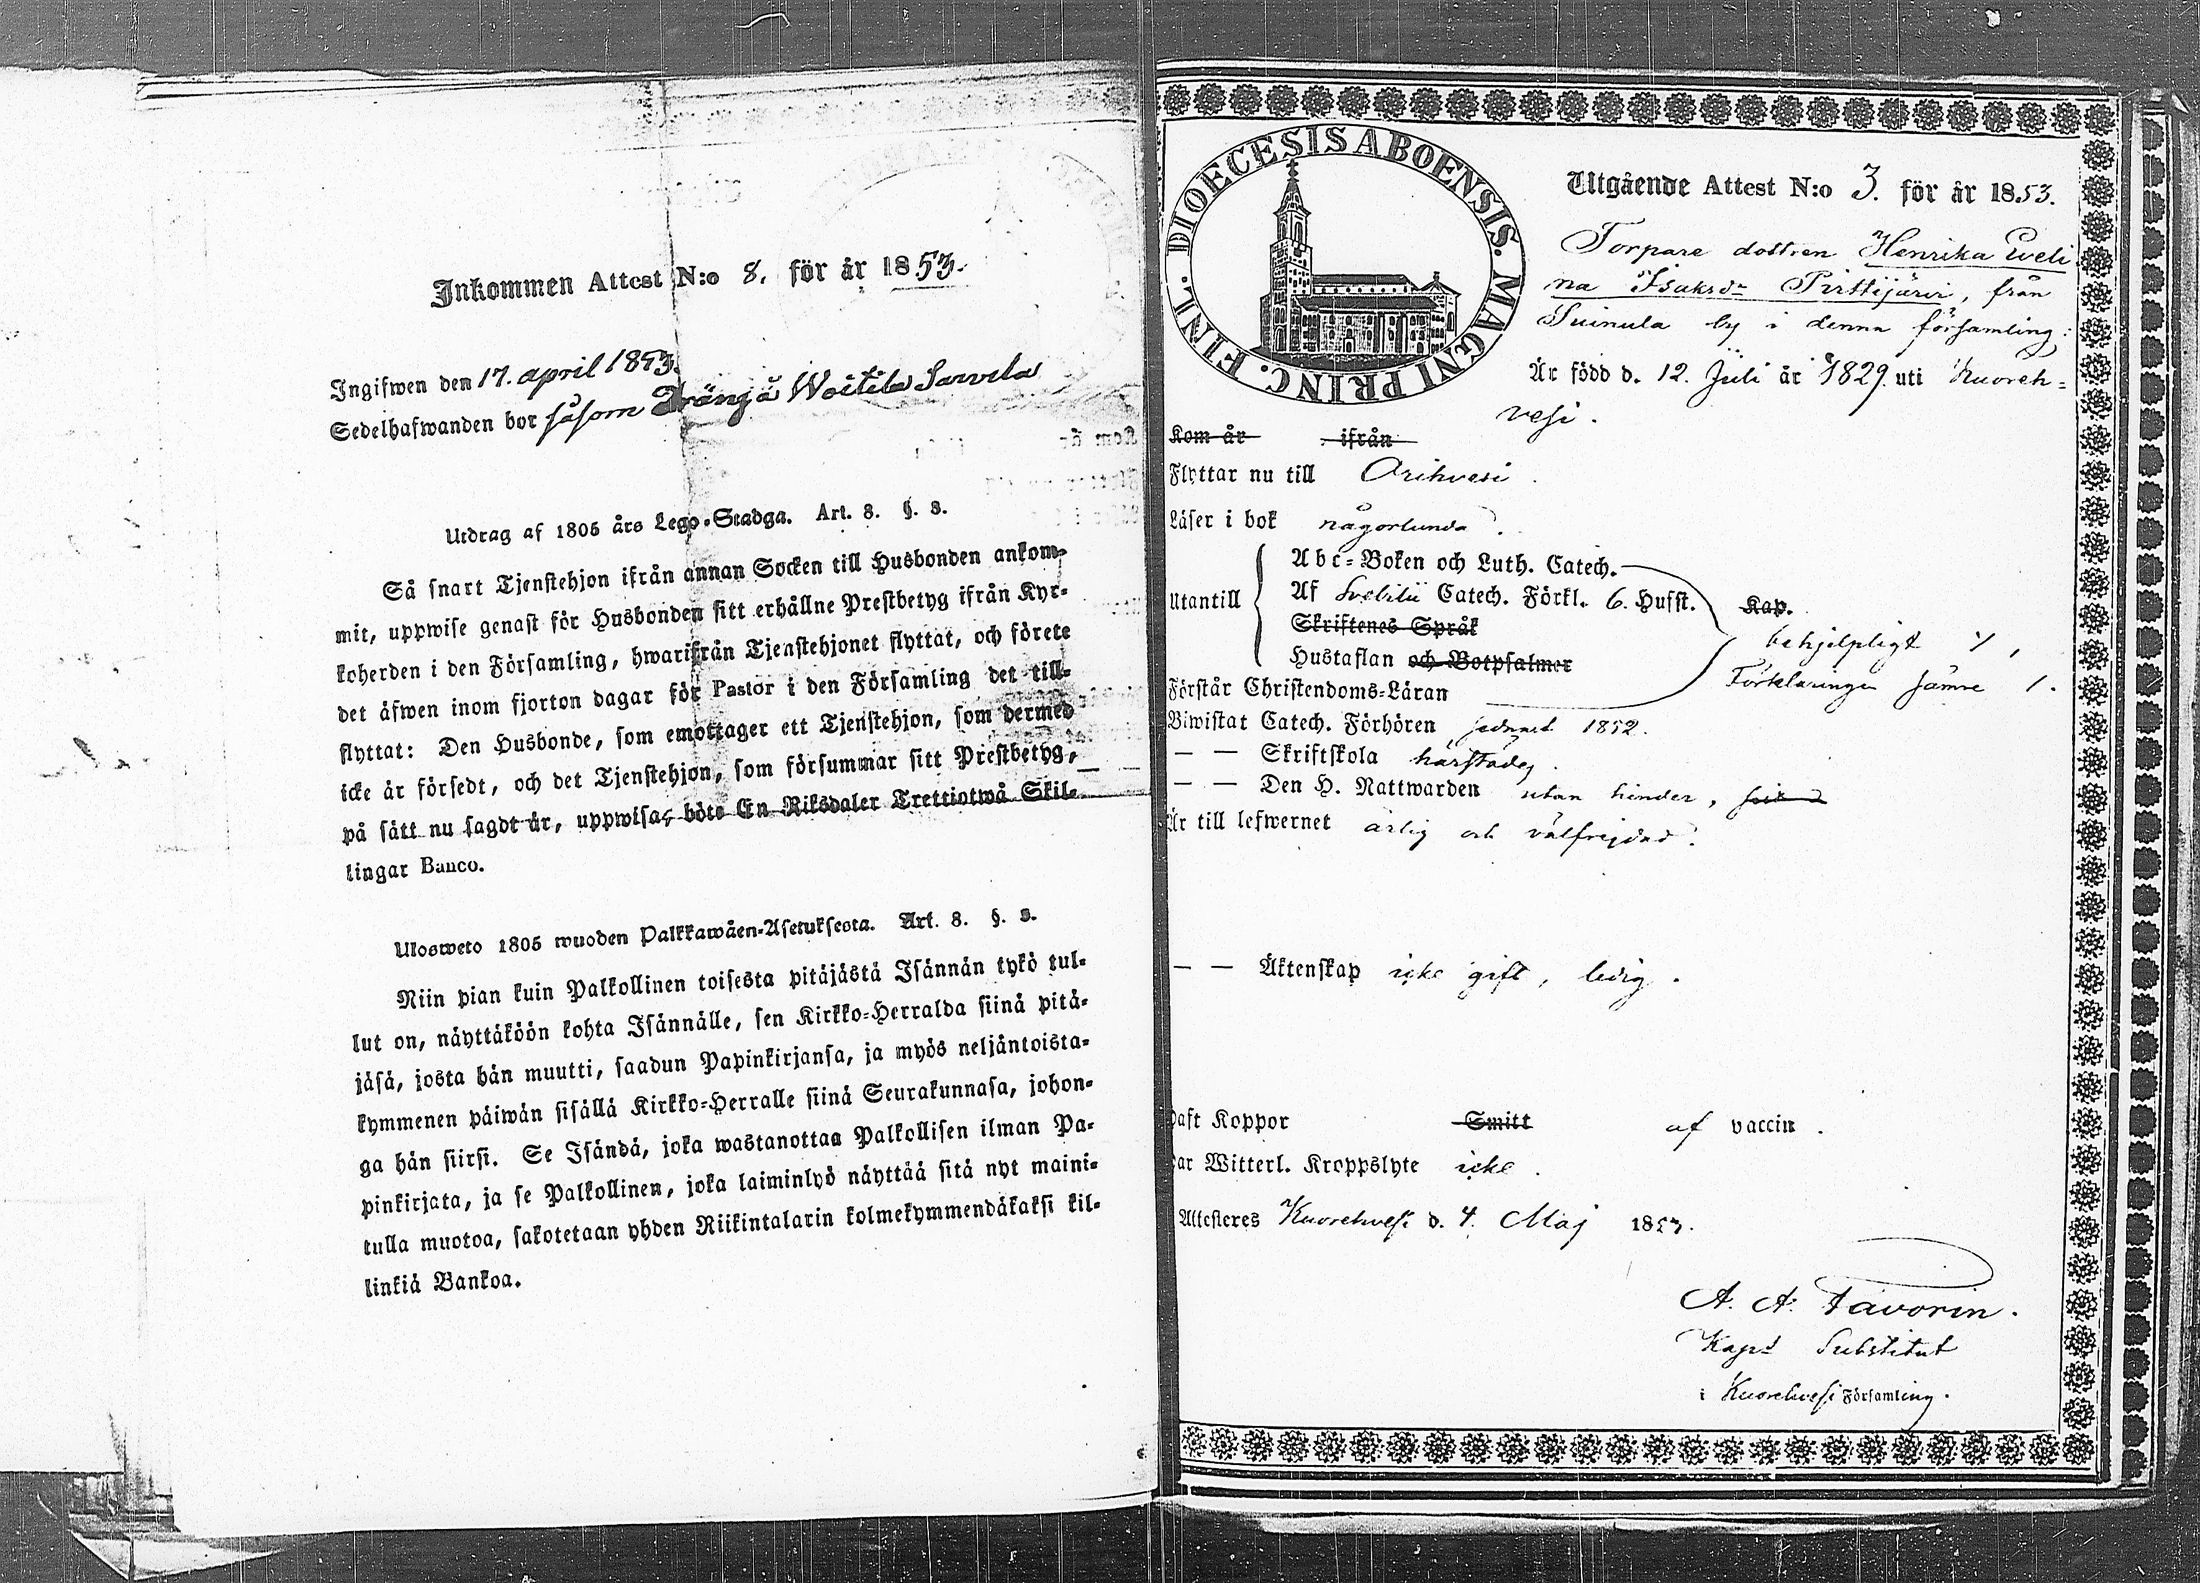 Inkommen Attest N:o 8. för år 1853.
Ingifwen den 17. april 1853.
Sedelhafwanden bor såsom Dräng å Woitila Sarvela
Utdrag af 1805 års Lego-Stadga. Art. 8. §. 3.
Så snart Tjenstehjon ifrån annan Socken till Husbonden ankom-
mit, uppwise genast för Husbonden sitt erhållne Prestbetyg ifrån Kyr-
koherden i den Församling, hwarifrån Tjenstehjonet flyttat, och förete
det äfwen inom fjorton dagar för Pastor i den Församling det till-
flyttat: Den Husbonde, som emottager ett Tjenstehjon, som dermed
icke är försedt, och det Tjenstehjon, som försummar sitt Prestbetyg,
på sätt nu sagdt är, uppwisa, böte En Riksdaler Trettiotwå Skil-
lingar Banco.
Ulosweto 1805 wuoden Palkkawäen-Asetuksesta. Art. 8. §. 3.
Niin pian kuin Palkollinen toisesta pitäjästä Isännän tykö tul-
lut on, näyttäköön kohta Isännälle, sen Kirkko-Herralda siinä pitä-
jäsä, josta hän muutti, saadun Papinkirjansa, ja myös neljäntoista-
kymmenen päiwän sisällä Kirkko-Herralle siinä Seurakunnasa, johon-
ga hän siirsi. Se Isändä, joka wastanottaa Palkollisen ilman Pa-
pinkirjata, ja se Palkollinen, joka laiminlyö näyttää sitä nyt maini-
tulla muotoa, sakotetaan yhden Riikintalarin kolmekymmendäkaksi kil-
linkiä Bankoa.
DIOECESIS ABOENSIS. MAGNI PRINC. FINL.
Utgående Attest N:o 3. för år 1853.
Torpare dottren Henrika Eveli-
na Isaksdr Pirttijärvi, från
Suinula by i denna församling:
Är född d. 12. Juli år 1829. uti Kuoreh=
vesi.
Kom år ifrån
Flyttar nu till Orihvesi.
Läser i bok någorlunda.
Abc-Boken och Luth. Catech.
Utantill Af Svebilii Catech. Förkl. 6. Hufst. Kap.
Skriftenes Språk
behjelpligt
Hustaflan och Botpsalmer
Förklaringen sämre
Förstår Christendoms-Läran
Biwistat Catech. Förhören sednast 1852.
— — Skriftskola härstädes.
— — Den H. Nattwarden utan hinder,
är till lefwernet ärlig och välfrejdad.
— — Äktenskap icke gift, ledig.
haft Koppor Smitt af vaccin.
har Witterl. Kroppslyte icke.
Attesteres Kuorehvesi d. 4. Maj 1853.
A. A. Favorin.
Kapns Substitut
i Kuorehvesi Församling.